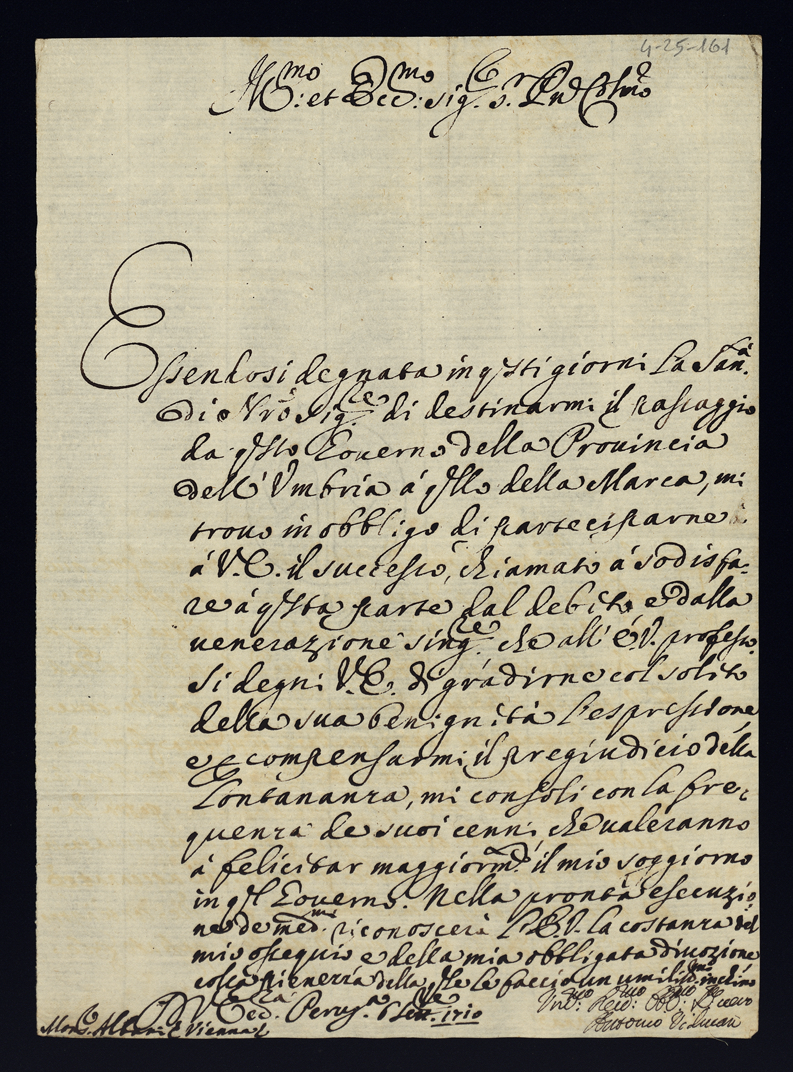 4-25-161
Ill:mo et Ecc:mo Sig.r S.r Pnē Col.mo
Essendosi degnata in q̃sti giorni La San.tà
di Nrō Sig.re di destinarmi il passaggio
da q̃sto Governo della Provincia
dell' Umbria á q̃llo della Marca, mi
trovo in obbligo di parteciparne
á V. E. il successo, chiamato á sodisfa-
re á q̃sta parte dal debito, e dalla
venerazione sing.re che all' E. V. professo.
Si degni V. E. di gradirne col solito
della sua benignità l'espressione,
e compensarmi il pregiudicio della
Lontananza, mi consoli con la fre-
quenza de suoi cenni, che valeranno
á felicitar maggiorm.te il mio soggiorno
in q̃l Governo. Nella pronta esecuzio-
ne de med.mi riconoscerà l'E. V. la costanza del
mio ossequio e della mia obbligata divozione
colla pienezza della q̃le le faccio un umiliss.mo inchino
D V Ecc.za Perug.a 6 1710
Mons. Albani Vienna
Um:o Dev:mo Obb:mo Se Vero
Antonio